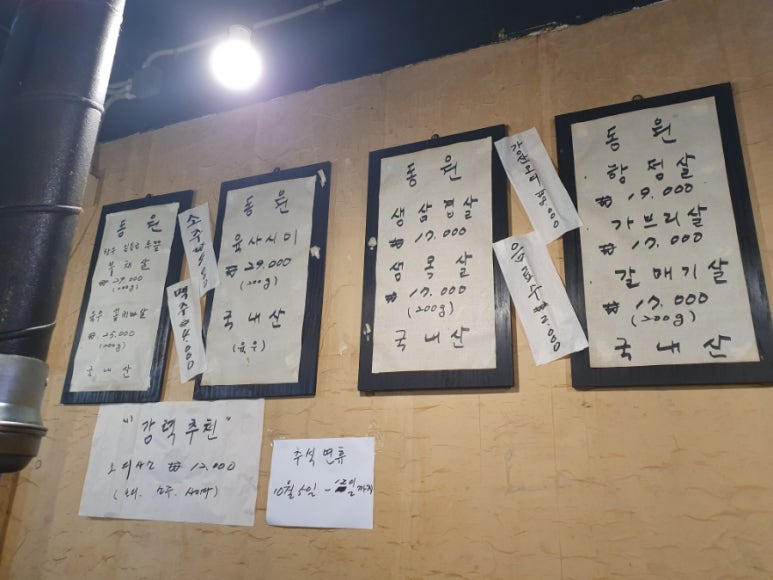 동원
부채살
₩29,000
(200g)
₩25,000
(200g)
국내산
소주
맥주 ₩4,000
동원
육사시미
₩29,000
(200g)
국내산
(육우)
동원
생삼겹살
₩17,000
생목살
₩17,000
(200g)
국내산
음료수 ₩2,000
동원
항정살
₩19,000
가브리살
₩17,000
갈매기살
₩17,000
(200g)
국내산
"강력추천"
₩12,000
추석 연휴
10월 5일 - 12일 까지